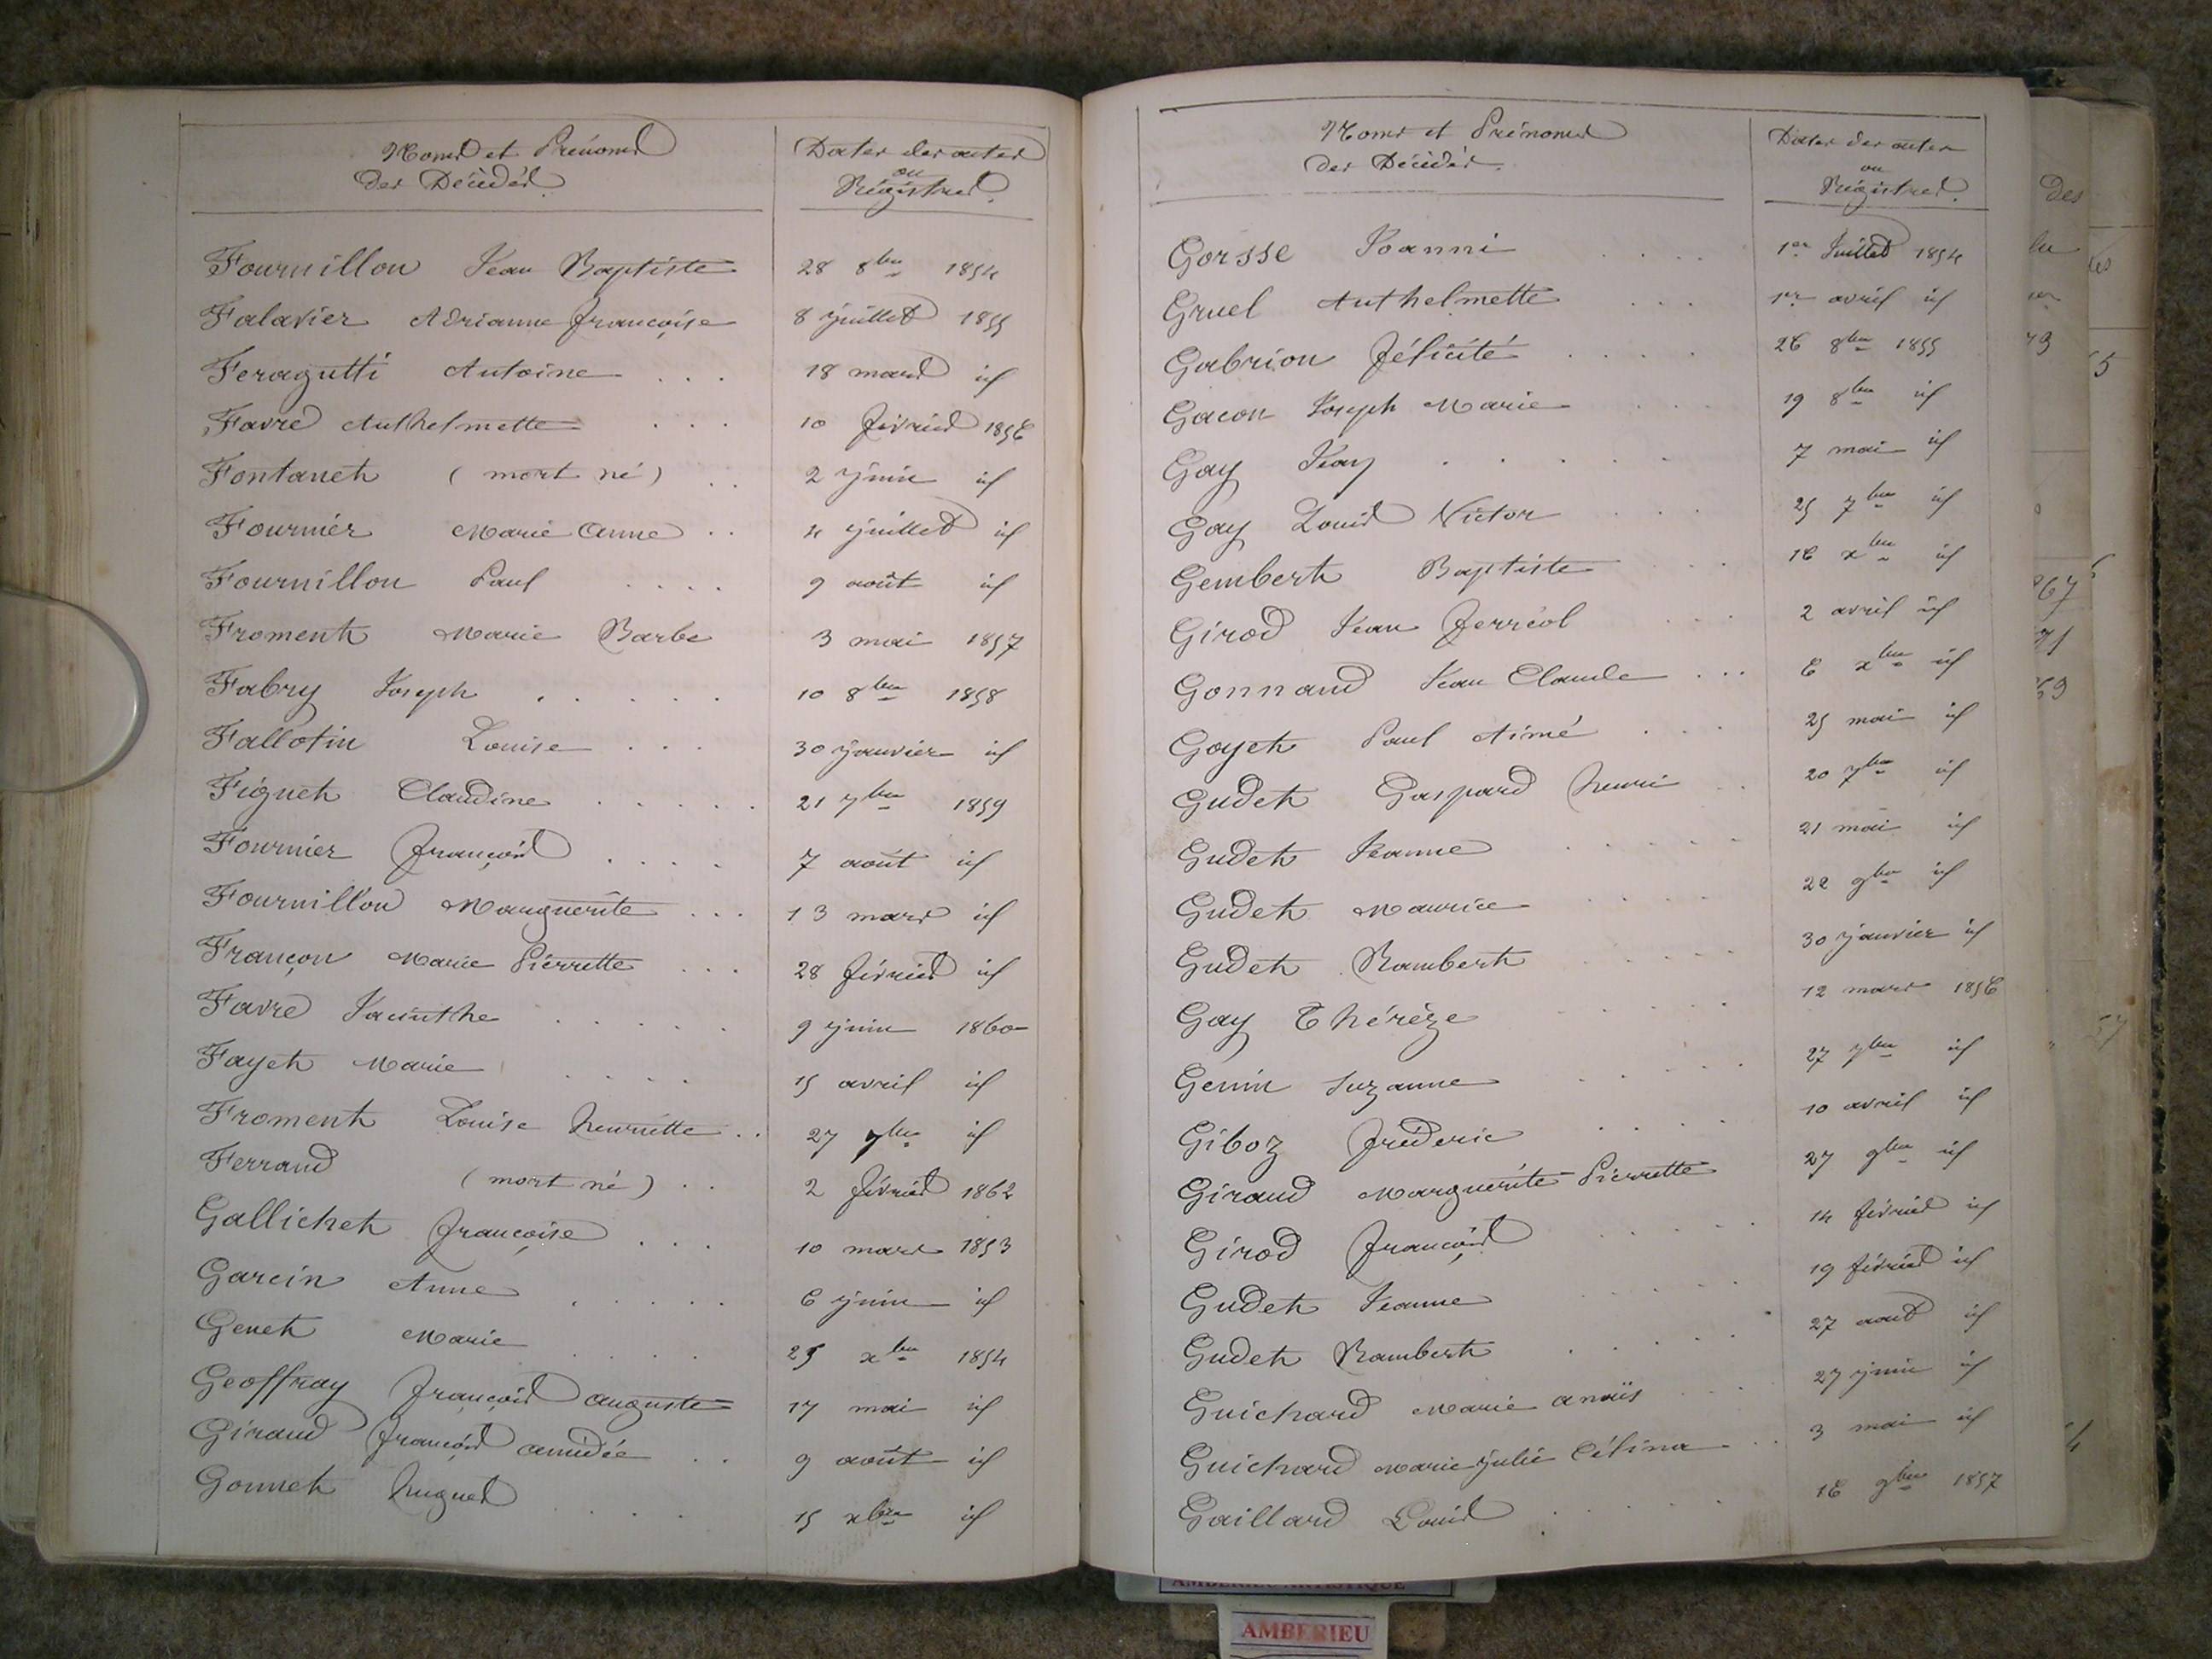 Noms et Prénoms
des Décédés.
Dates des actes
ou
Régistres.
Fournillon Jean Baptiste 28 8bre 1854
Falavier Adrianne françoise 8 juillet 1855
Feragutti Antoine . . . 18 mars id
Favre Anthelmette . . . 10 février 1856
Fontanet (mort né) . . 2 juin id
Fournier Marie Anne . . 4 juillet id
Fournillon Paul . . . . 9 août id
Froment Marie Barbe 3 mai 1857
Fabry Joseph . . . . . 10 8bre 1858
Fallotin Louise . . . 30 janvier id
Figuet Claudine . . . . . 21 7bre 1859
Fournier françois . . . . 7 août id
Fournillon Marguerite . . . 13 mars id
Françon Marie Pierrette . . . 28 février id
Favre Jacinthe . . . . . . 9 juin 1860
Fayet Marie . . . . 15 avril id
Froment Louise henriette . . 27 7bre id
Ferrand (mort né) . . 2 février 1862
Gallichet françoise . . . 10 mars 1853
Garcin Anne . . . . . 6 juin id
Genet Marie . . . . 25 xbre 1854
Geoffray françois auguste 17 mai id
Giraud françois amédée . . 9 août id
Gonnet hugues . . . . 15 xbre id
Noms et Prénoms
des Décédés.
Dates des actes
ou
Régistres.
Gorsse Joanni . . . . 1er Juillet 1854
Gruel Anthelmette . . . 1er avril id
Gabrion félicité . . . . 26 8bre 1855
Gacon Joseph Marie . . . 19 8bre id
Gay Jean . . . . . 7 mai id
Gay Louis Victor . . . . 25 7bre id
Gembert Baptiste . . . 16 xbre id
Girod Jean ferréol . . . 2 avril id
Gonnand Jean Claude . . . 6 xbre id
Goyet Paul Aimé . . . 25 mai id
Gudet Gaspard henri . . 20 7bre id
Gudet Jeanne . . . . . 21 mai id
Gudet Maurice . . . . 22 9bre id
Gudet Rambert . . . . . 30 janvier id
Gay Thérèze . . . . 12 mars 1856
Genin Suzanne . . . . . 27 7bre id
Giboz fréderic . . . . 10 avril id
Giraud Marguerite Pierrette 27 9bre id
Girod françois . . . . 14 février id
Gudet Jeanne . . . . 19 février id
Gudet Rambert . . . . 27 août id
Guichard Marie anaïs . . . 27 juin id
Guichard Marie julie Célina . . 3 mai id
Gaillard Louis . . . . . 16 9bre 1857
AMBERIEU